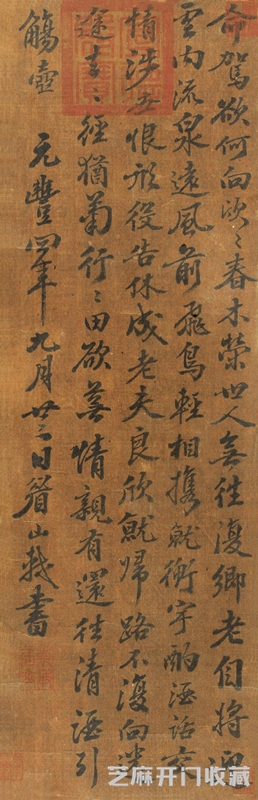 命駕欲何向欣々春木榮世人無往復鄉老自將迎
雲內流泉遠風前飛鳥輕相攜就衡宇酌酒話交
情涉世恨形役告休成老夫良欣就歸路不復向迷
途去々徑猶菊行々田欲蕪情親有還往清酒引
觴壺 元豐四年九月廿二日眉山軾書
芝麻开门收藏